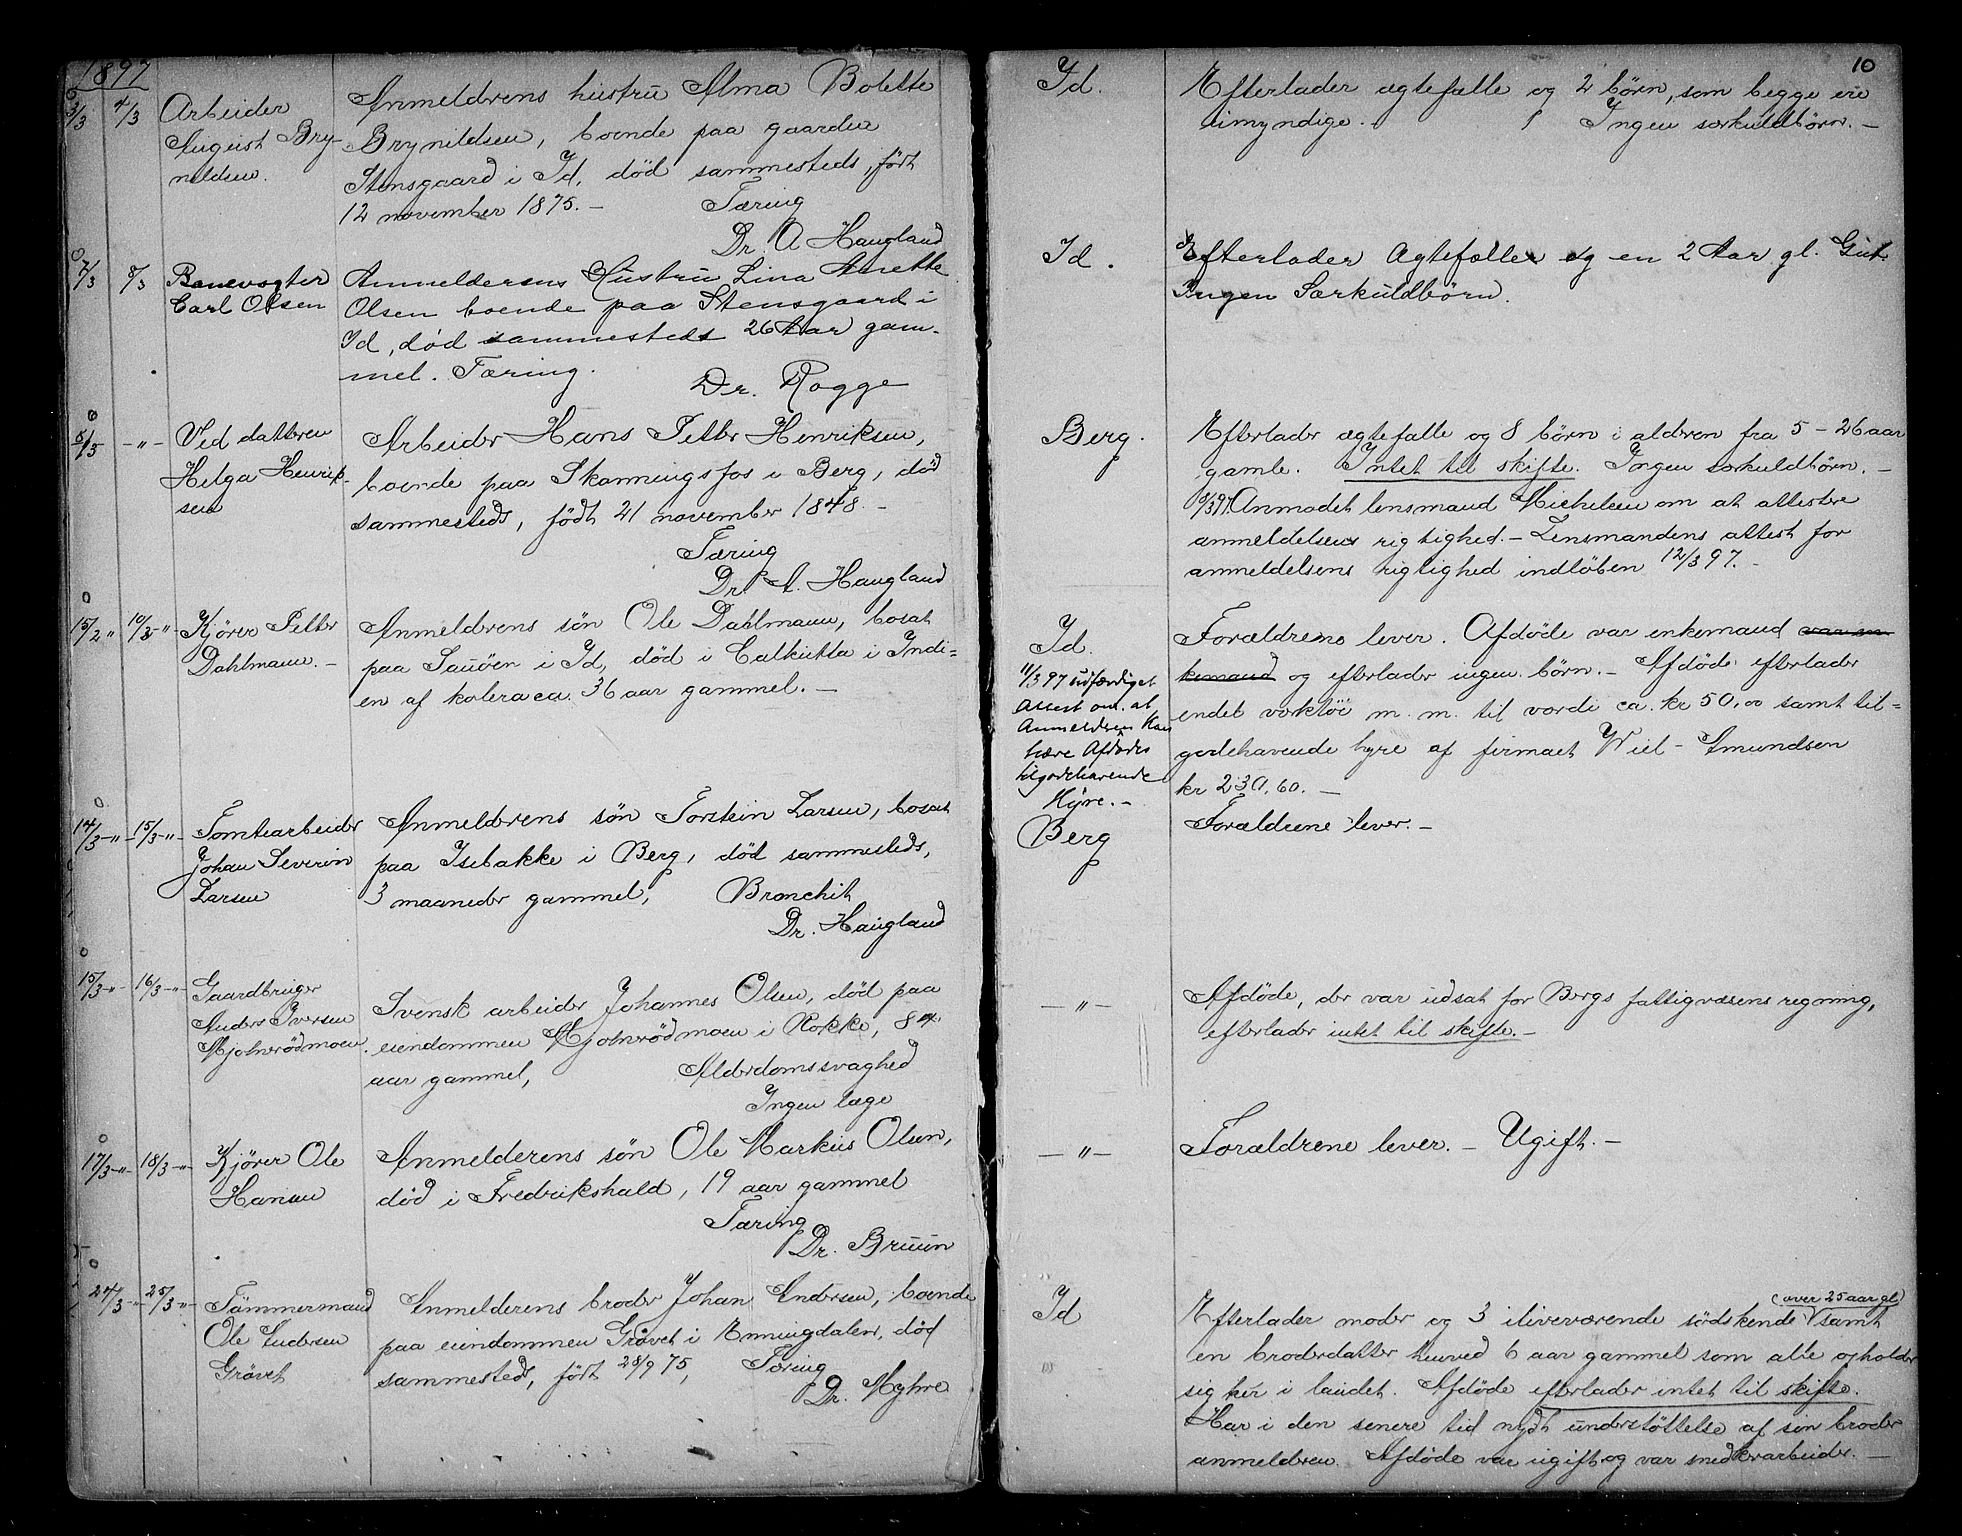 1897
3/3 4/3 Arbeider
August Bry-
nildsen.
Anmelderens hustru Alma Bolette
Brynildsen, boende paa gaarden
Stensgaard i Id, død sammesteds, født
12 november 1875. — Tæring
Dr. A Haugland
Id.
Efterlader ægtefælle og 2 börn, som begge ere
umyndige. Ingen særkuldbörn. —
10
7/3 8/3 Banevogter
Carl Olsen
Anmelderens Hustru Lina Anette
Olsen boende paa Stensgaard i
Id, död sammesteds 26 Aar gam-
mel. Tæring.
Dr. Rogge
Id.
Efterlader Ægtefælle og en 2 Aar gl. Gut.
Ingen Særkuldbörn.
8/3 -"- Ved datteren
Helga Henrik-
sen
Arbeider Hans Petter Henriksen,
boende paa Skanningsfos i Berg, död
sammesteds, födt 21 november 1848. —
Tæring
Dr. A. Haugland
Berg.
Efterlader ægtefælle og 8 börn i alderen fra 5 - 26 aar
gamle. Intet til skifte. Ingen særkuldbörn. —
8/3 97. Anmodet lensmand Michelsen om at attestere
anmeldelsens rigtighed. — Lensmandens attest for
anmeldelsens rigtighed indlöben 12/3 97. —
15/2 " 10/3 -"- Kjører Petter
Dahlmann. —
Anmelderens søn Ole Dahlmann, bosat
paa Sauøen i Id, död i Calkutta i Indi=
en af kolera ca. 36 aar gammel. —
Id.
11/3 97 udfærdiget
Attest om, at
Anmelderen kan
hæve Afdødes
tilgodehavende
Hyre. —
Forældrene lever. Afdöde var enkemand var en
kemand og efterlader ingen börn. — Afdöde efterlader
endel værktöi m. m. til værdi ca. kr 50,00 samt til=
godehavende hyre af firmaet Wiel - Amundsen
kr 230.60. —
14/3 -"- 15/3 -"- Tomtearbeider
Johan Severin
Larsen
Anmelderens søn Torstein Larsen, bosat
paa Isebakke i Berg, död sammesteds,
3 maaneder gammel, Bronchit
Dr. Haugland
Berg
Forældrene lever. —
15/3 -"- 16/3 -"- Gaardbruger
Anders Iversen
Mjølnerödmoen.
Svensk arbeider Johannes Olsen, död paa
eiendommen Mjølnerödmoen i Rokke, 84
aar gammel, Alderdomssvaghed
Ingen læge
— " —
Afdöde, der var udsat for Bergs fattigvæsens regning,
efterlader intet til skifte. —
17/3 -"- 18/3 -"- Kjører Ole
Hansen
Anmelderens søn Ole Markus Olsen,
död i Fredrikshald, 19 aar gammel
Tæring
Dr. Bruun
— " —
Forældrene lever. — Ugift. —
24/3 -"- 25/3 -"- Tömmermand
Ole Andersen
Grövet
Anmelderens broder Johan Andersen, boende
paa eiendommen Grövet i Enningdalen, död
sammesteds, födt 28/9 75, Tæring
Dr. Myhre
Id
(over 25 aar gl)
Efterlader moder og 3 ilivevärende södskende samt
en broderdatter henved 6 aar gammel som alle opholder
sig her i landet. Afdöde efterlader intet til skifte.
Har i den senere tid nydt understöttelse af sin broder
anmelderen. Afdöde var ugift og var snedkerarbeider. —